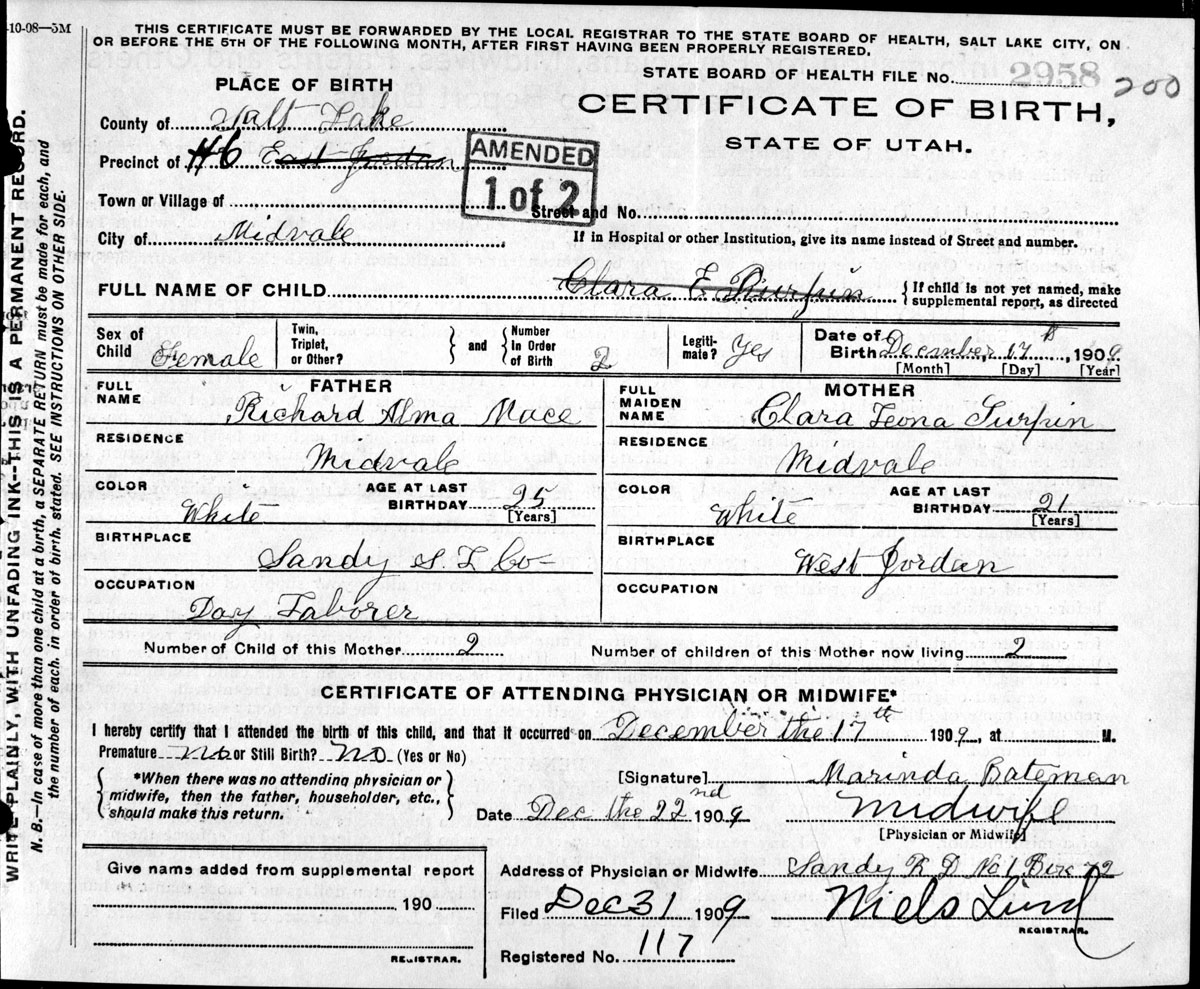 -10-08—5M
THIS CERTIFICATE MUST BE FORWARDED BY THE LOCAL REGISTRAR TO THE STATE BOARD OF HEALTH, SALT LAKE CITY, ON
OR BEFORE THE 5TH OF THE FOLLOWING MONTH, AFTER FIRST HAVING BEEN PROPERLY REGISTERED.
STATE BOARD OF HEALTH FILE No. 2958 200
PLACE OF BIRTH
CERTIFICATE OF BIRTH,
STATE OF UTAH.
County of Salt Lake
Precinct of #6 East Jordan
AMENDED
1 of 2
Town or Village of
Street and No.
City of Midvale
If in Hospital or other Institution, give its name instead of Street and number.
FULL NAME OF CHILD Clara E. Turpin { If child is not yet named, make
supplemental report, as directed
Sex of Child Female
Twin, Triplet, or Other? } and { Number In Order of Birth 2
Legiti-mate? Yes
Date of Birth December, 17th, 1909
[Month] [Day] [Year]
FATHER
FULL NAME Richard Alma Mace
RESIDENCE
Midvale
COLOR White AGE AT LAST BIRTHDAY 25
[Years]
BIRTHPLACE
Sandy S. L Co-
OCCUPATION
Day Laborer
MOTHER
FULL MAIDEN NAME Clara Leona Turpin
RESIDENCE
Midvale
COLOR White AGE AT LAST BIRTHDAY 21
[Years]
BIRTHPLACE
West Jordan
OCCUPATION
Number of Child of this Mother 2 Number of children of this Mother now living 2
CERTIFICATE OF ATTENDING PHYSICIAN OR MIDWIFE*
I hereby certify that I attended the birth of this child, and that it occurred on December the 17th 1909, at M.
Premature No or Still Birth? No (Yes or No)
{ *When there was no attending physician or
midwife, then the father, householder, etc.,
should make this return. }
[Signature] Marinda Bateman
Date Dec the 22nd 1909 Midwife
[Physician or Midwife]
Address of Physician or Midwife Sandy R D No 1 Box 72
Filed Dec 31 1909 Niels Lind
REGISTRAR.
Registered No. 117
Give name added from supplemental report
190
REGISTRAR.
WRITE PLAINLY, WITH UNFADING INK--THIS IS A PERMANENT RECORD.
N. B.—In case of more than one child at a birth, a SEPARATE RETURN must be made for each, and
the number of each, in order of birth, stated. SEE INSTRUCTIONS ON OTHER SIDE.